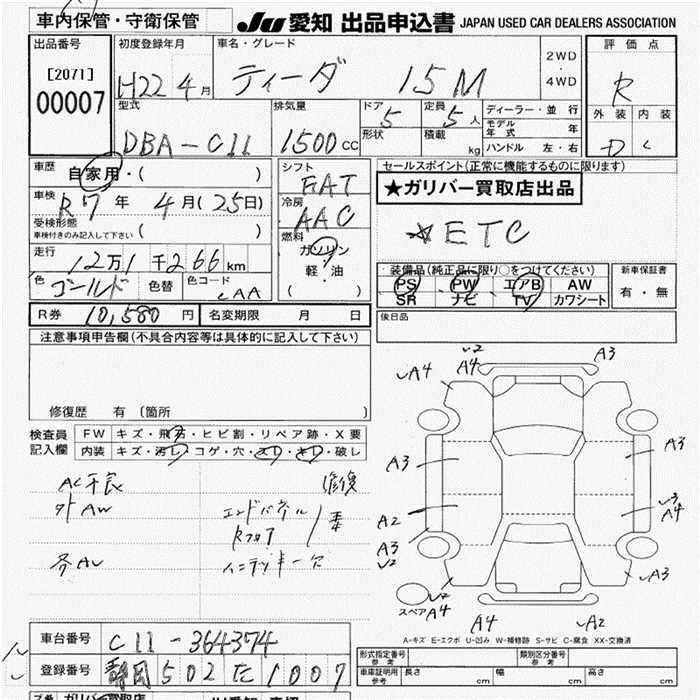 車内保管・守衛保管
JU 愛知 出品申込書 JAPAN USED CAR DEALERS ASSOCIATION
出品番号
[2071]
00007
初度登録年月
H22 4月
車名・グレード
ティーダ 15M
2WD
・
4WD
評価点
R
外装 内装
D C
型式
DBA-C11
排気量
1500 CC
ドア
5
形状
定員
5人
積載
kg
ディーラー・並行
モデル年式 年
ハンドル 左・右
車歴
自家用・( )
車検
R7年 4月(25日)
受検形態
車検付きのみ記入して下さい ( )
走行
12万1千266km
色
ゴールド
色替
色コード
CAA
シフト
FAT
冷房
AAC
燃料
ガソリン
軽・油
( )
セールスポイント(正常に機能するものに限ります)
★ガリバー買取店出品
☆ETC
装備品(純正品に限り○をつけてください)
PS PW エアB AW
SR ナビ TV カワシート
新車保証書
有・無
後日品
R券 10,580円
名変期限 月 日
注意事項申告欄(不具合内容等は具体的に記入して下さい)
修復歴 有(箇所 )
検査員
記入欄
FW キズ・飛石・ヒビ割・リペア跡・X要
内装 キズ・汚レ・コゲ・穴・スレ・キレ・破レ
AC不良
修復
外AW
エンドパネル
Rフロア
各AU
インテリキー欠
A4
U2
A4
A3
A3
A2
A3
U2
A4
A3
U2
A4
スペア
A4
A2
A-キズ E-エクボ U-凹み W-補修跡 S-サビ C-腐食 XX-交換済
車台番号
C11-364374
登録番号
静岡 502 た 1007
形式指定番号
参考
類別区分番号
参考
車庫証明用
参考
長さ cm
幅 cm
高さ cm
ガリバー買取店